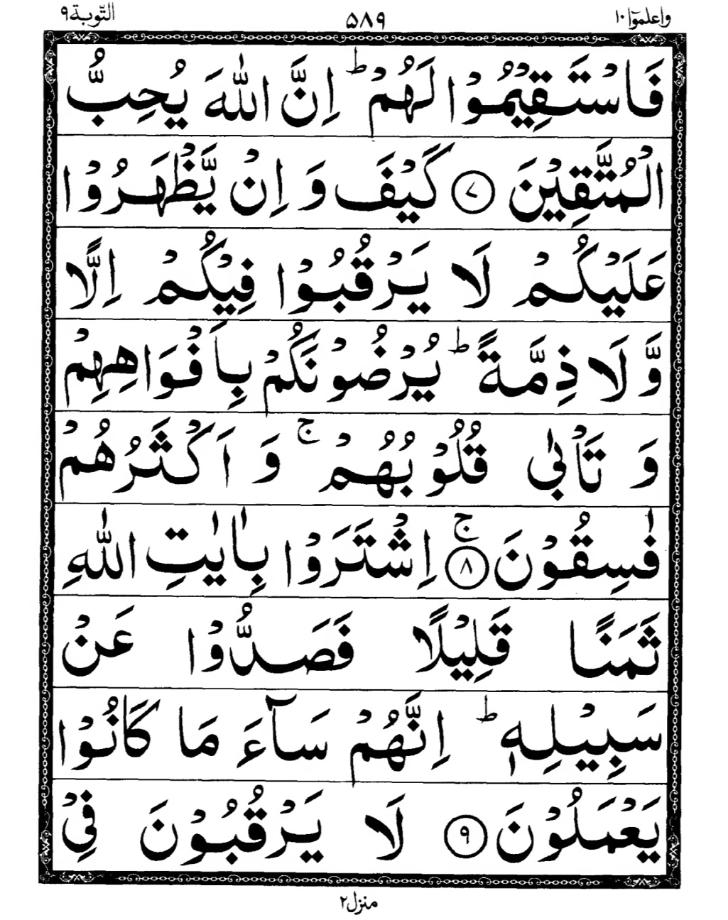 واعلموٓا ١٠ ٥٨٩ التّوبة ٩
فَاسْتَقِيْمُوْا لَهُمْ ؕ اِنَّ اللّٰهَ يُحِبُّ
الْمُتَّقِيْنَ ۝٧ كَيْفَ وَ اِنْ يَّظْهَرُوْا
عَلَيْكُمْ لَا يَرْقُبُوْا فِيْكُمْ اِلًّا
وَّ لَا ذِمَّةً ؕ يُرْضُوْنَكُمْ بِاَفْوَاهِهِمْ
وَ تَاْبٰى قُلُوْبُهُمْ ۚ وَ اَكْثَرُهُمْ
فٰسِقُوْنَ ۝٨ۚ اِشْتَرَوْا بِاٰيٰتِ اللّٰهِ
ثَمَنًا قَلِيْلًا فَصَدُّوْا عَنْ
سَبِيْلِهٖ ؕ اِنَّهُمْ سَآءَ مَا كَانُوْا
يَعْمَلُوْنَ ۝٩ لَا يَرْقُبُوْنَ فِيْ
منزل ٢